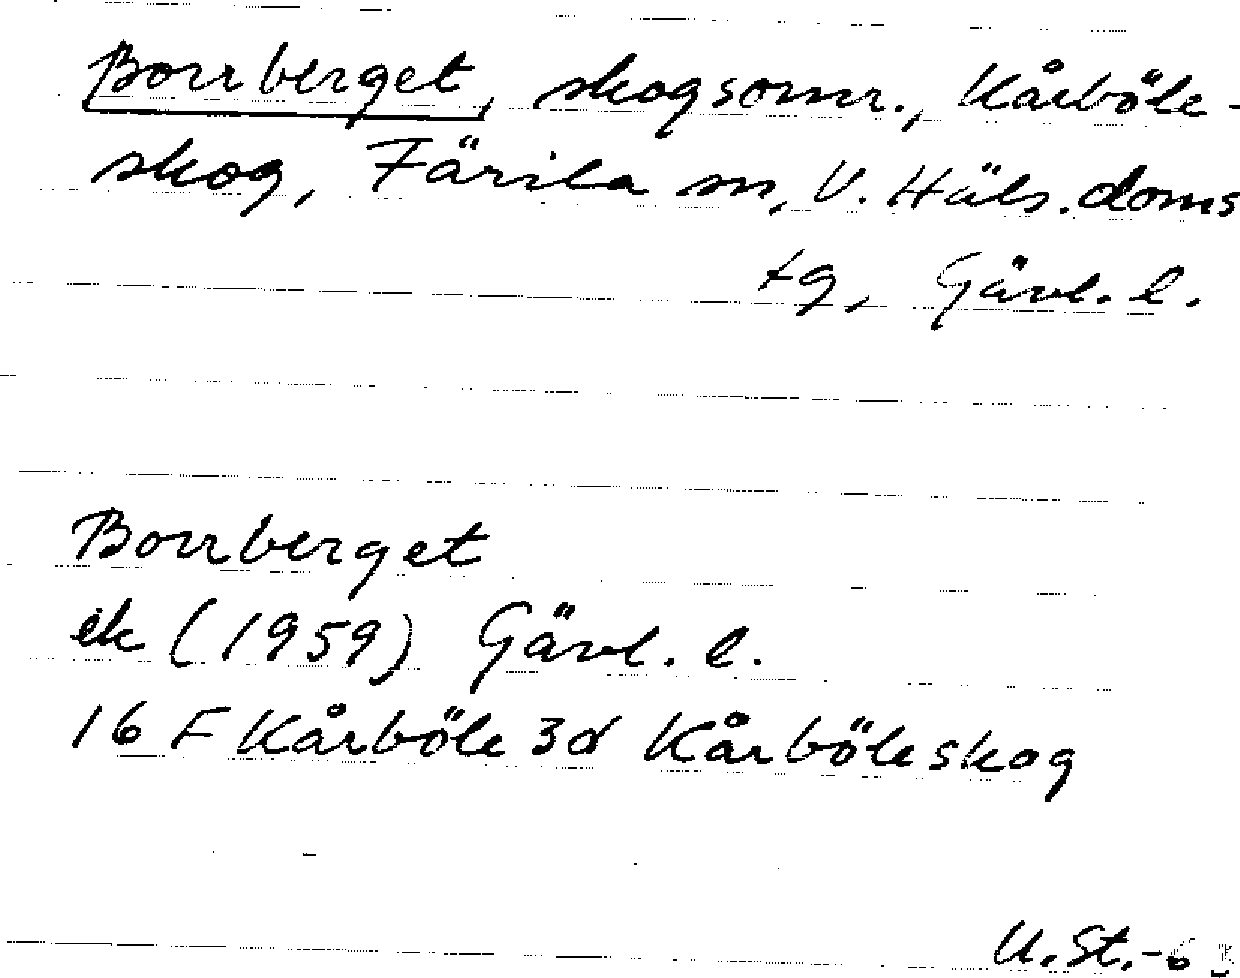 Borrberget, skogsomr., Kårböle-
skog, Färila sn, V. Häls. doms
tg, Gävl. l.
Borrberget
ek (1959) Gävl. l.
16 F Kårböle 3d Kårböleskog
U. St. -63